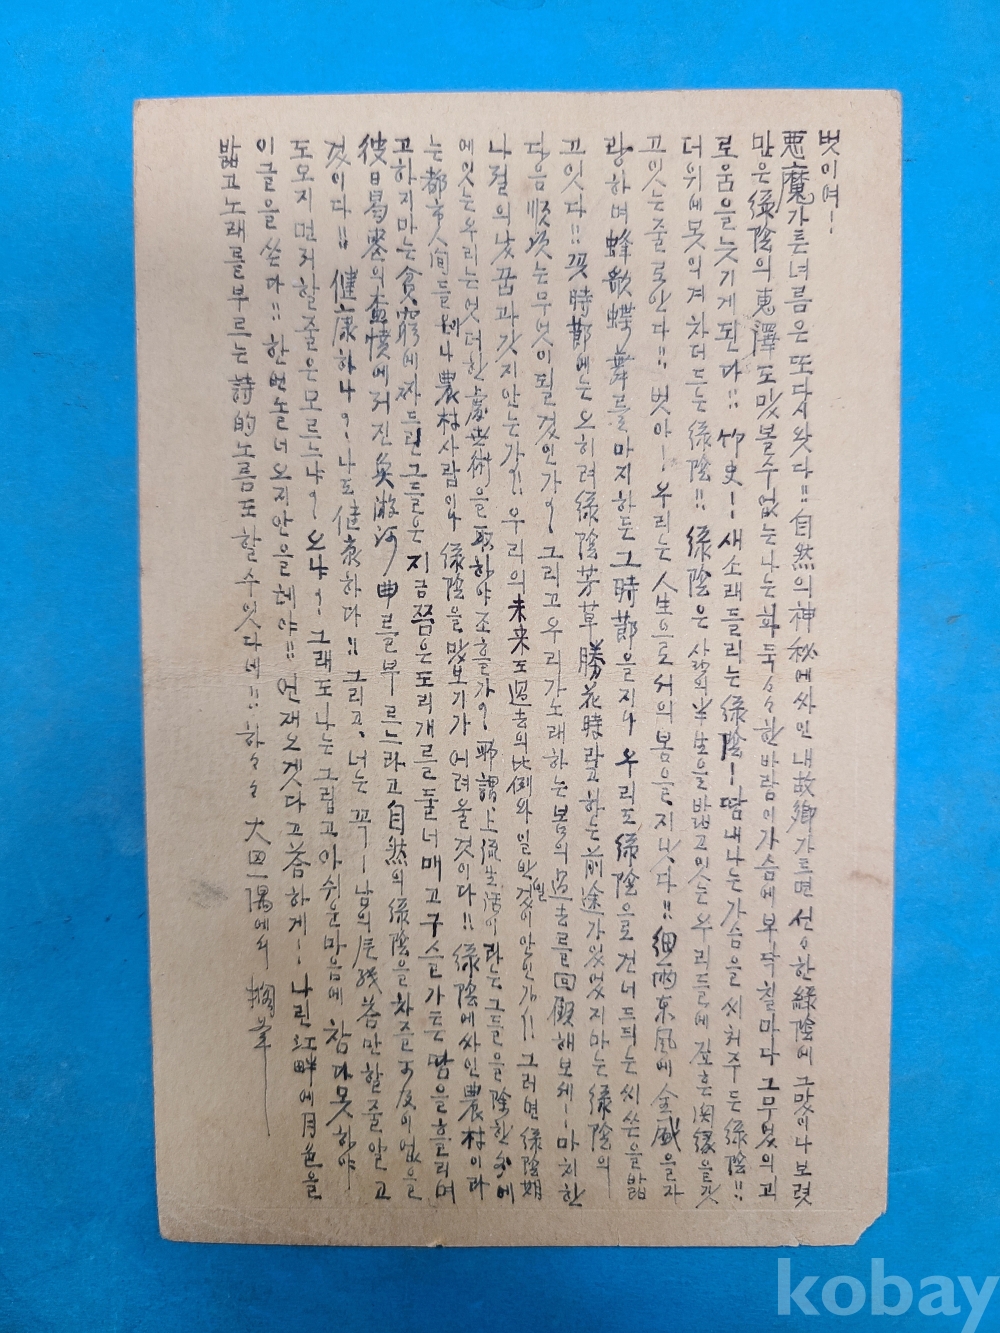 벗이여ㅡ!
悪魔가튼녀름은또다시왓다!! 自然의神秘에싸인내故鄕가르면선々한綠陰에그맛이나보렷
만은綠陰의惠澤도맛볼수없는나는화둑々々한바람이가슴에부닥칠마다그무엇의괴
로움을늣기게된다!! 竹史ㅡ! 새소래들리는綠陰ㅡ! 땀내나는가슴을씨처주든綠陰!!
더위에못의겨차더든綠陰!! 綠陰은사람의半生을밥고잇는우리들에깁흔因緣을갓
고잇는줄로안다!! 벗아ㅡ! 우리는人生으로서의봄을지낫다!! 細雨東風에金風을자
랑하며蜂歌蝶舞를마지하든그時節을지나우리도綠陰으로건너드듸는씨쓴을밟
고잇다!! 꽃時節에는오히려綠陰芳草勝花時라고하는前途가잇엇지마는綠陰의
다음順次는무엇이될것인가ㅣ, 그리고우리가노래하는봄의過去를回顧해보세ㅡ! 마치한
나절의낮꿈과갓지안는가!! 우리의未來도過去의比例와일반일것이안인가!! 그러면綠陰期
에잇는우리는엇더한處世術을取하야조흘가ㅣ, 所謂上流生活이라는그들을除한外에
는都市人間들이나農村사람이나綠陰을맛보기가어려울것이다!! 綠陰에싸인農村이라
고하지마는貧窮에짜드린그들은지금쯤은도리개를둘너매고구슬가튼땀을흘리며
彼日曷喪의 에저진 를부르느라고自然의綠陰을차즐 이없을
것이다!! 健康하냐ㅣ, 나도健康하다!! 그리고, 너는꼭ㅡ남의 答만할줄알고
도모지먼저할줄은모르느냐ㅣ, 오냐ㅣ, 그래도나는그립고아쉬운마음에참다못하야
이글을쓴다!! 한번놀너오지안을헤야!! 언재오겟다고答하게ㅡ! 나린江畔에月色을
밟고노래를부르는詩的노름도할수잇다네!! 하々々 大田陽에서 擱筆
kobay